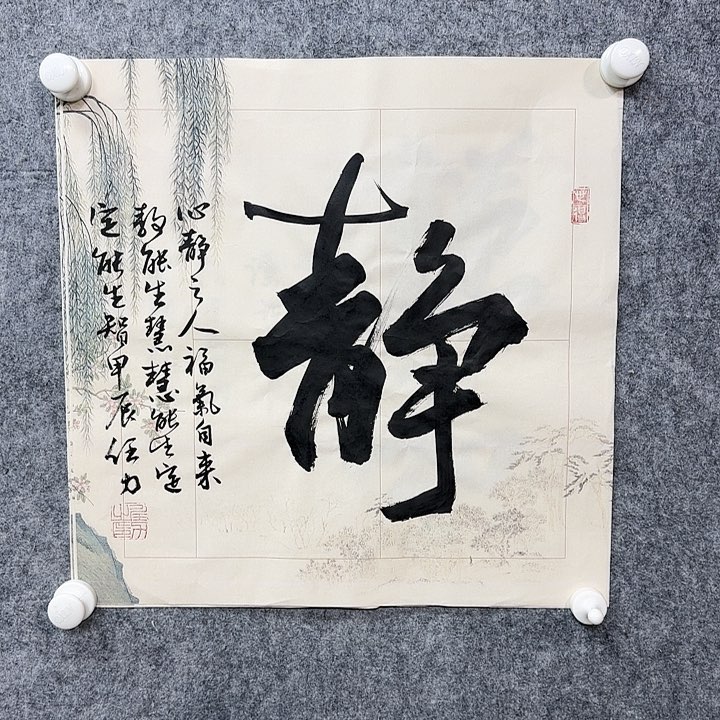 静
心静之人福氣自来
静能生慧慧能生定
定能生智甲辰任力